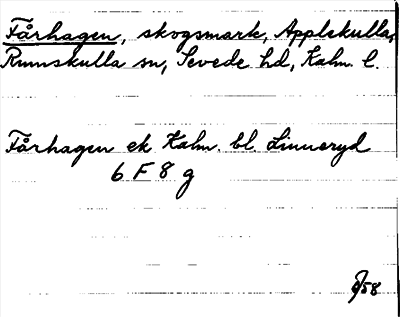 Fårhagen, skogsmark, Applekulla,
Rumskulla sn, Sevede hd, Kalm. l.
Fårhagen ek Kalm. bl. Linneryd
6 F 8 g
58